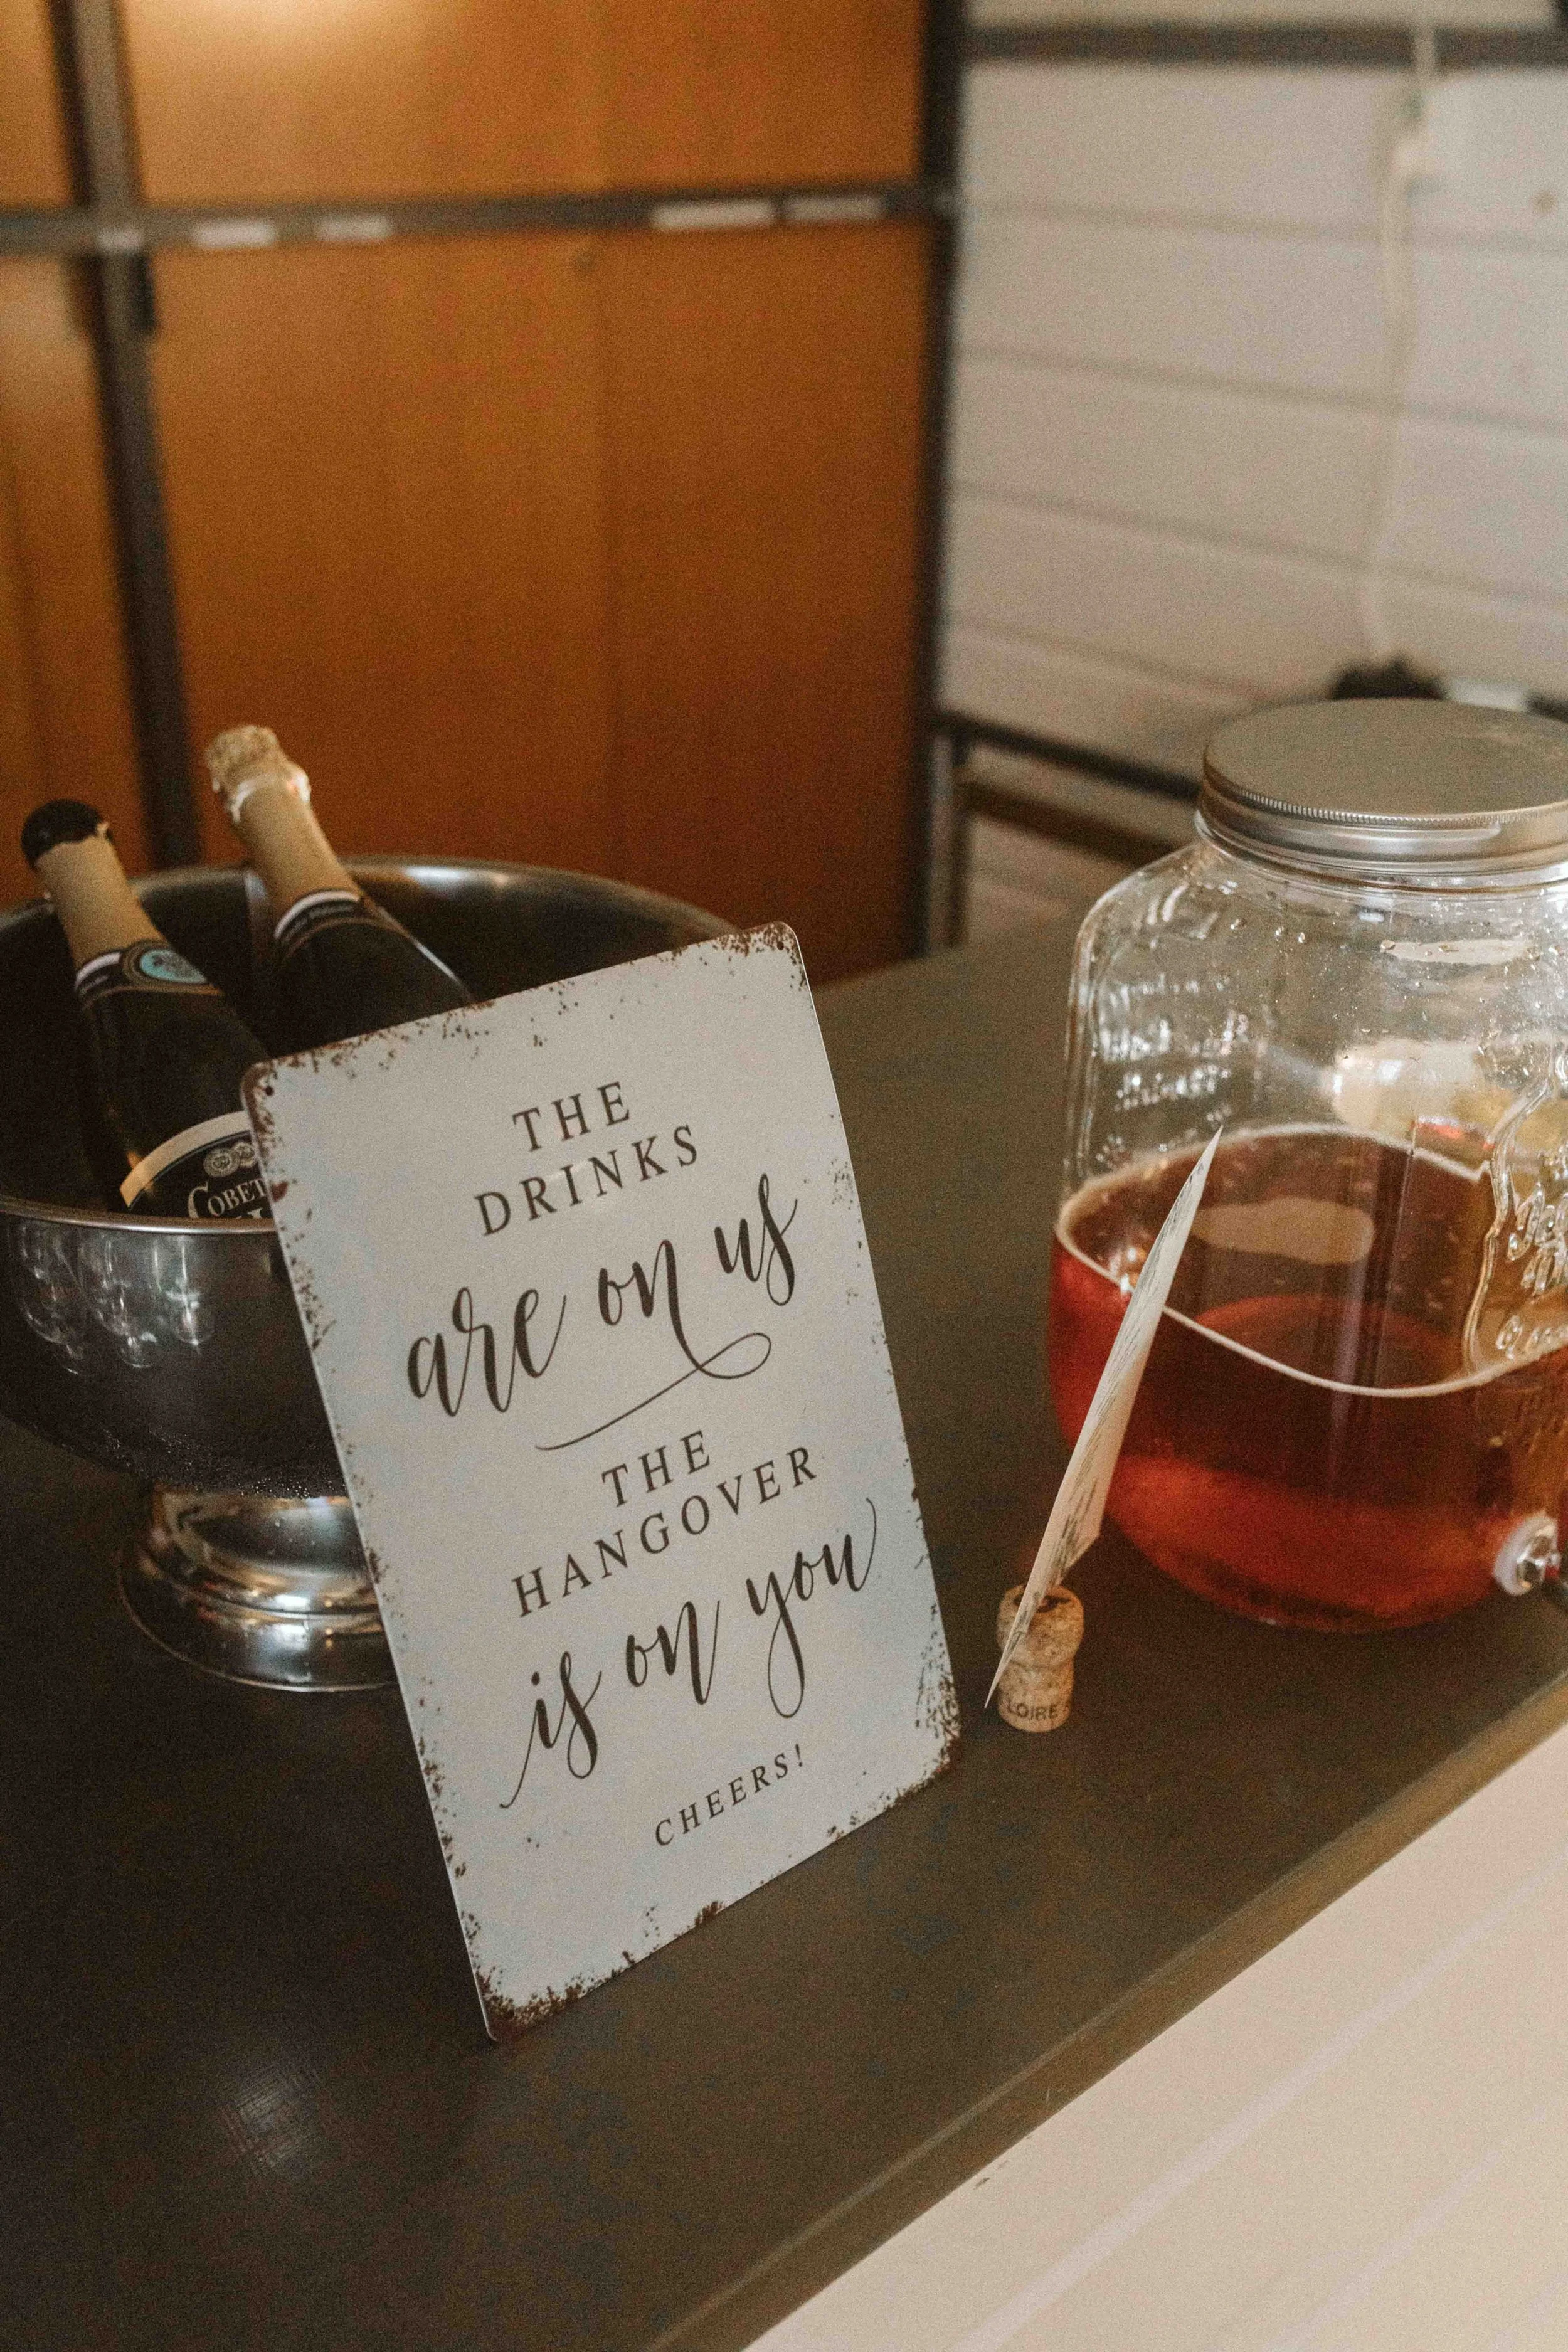 THE
DRINKS
are on us
THE
HANGOVER
is on you
CHEERS!
LOIRE